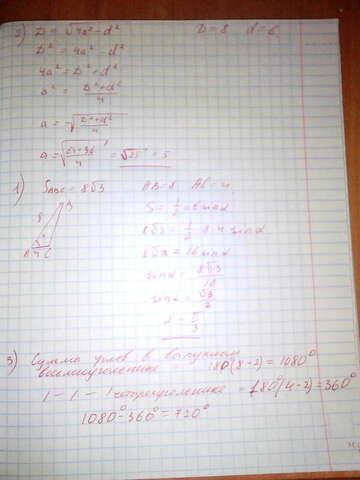 2) D = √4a² - d² D = 8 d = 6
D² = 4a² - d²
4a² = D² + d²
a² = D² + d² / 4
a = √D² + d² / 4
a = √64 + 36 / 4 = √25 = 5
1) S ABC = 8√3 AB = 8 AC = 4
S = 1/2 ab sin α
8√3 = 1/2 8·4 sin α
8√3 = 16 sin α
sin α = 8√3 / 16
sin α = √3 / 2
α = π / 3
8
A 4 C
3) Сумма углов в выпуклом
восьмиугольнике = 180(8-2) = 1080°
1 — 1 — 1 четырехугольнике = 180°(4-2) = 360°
1080° - 360° = 720°